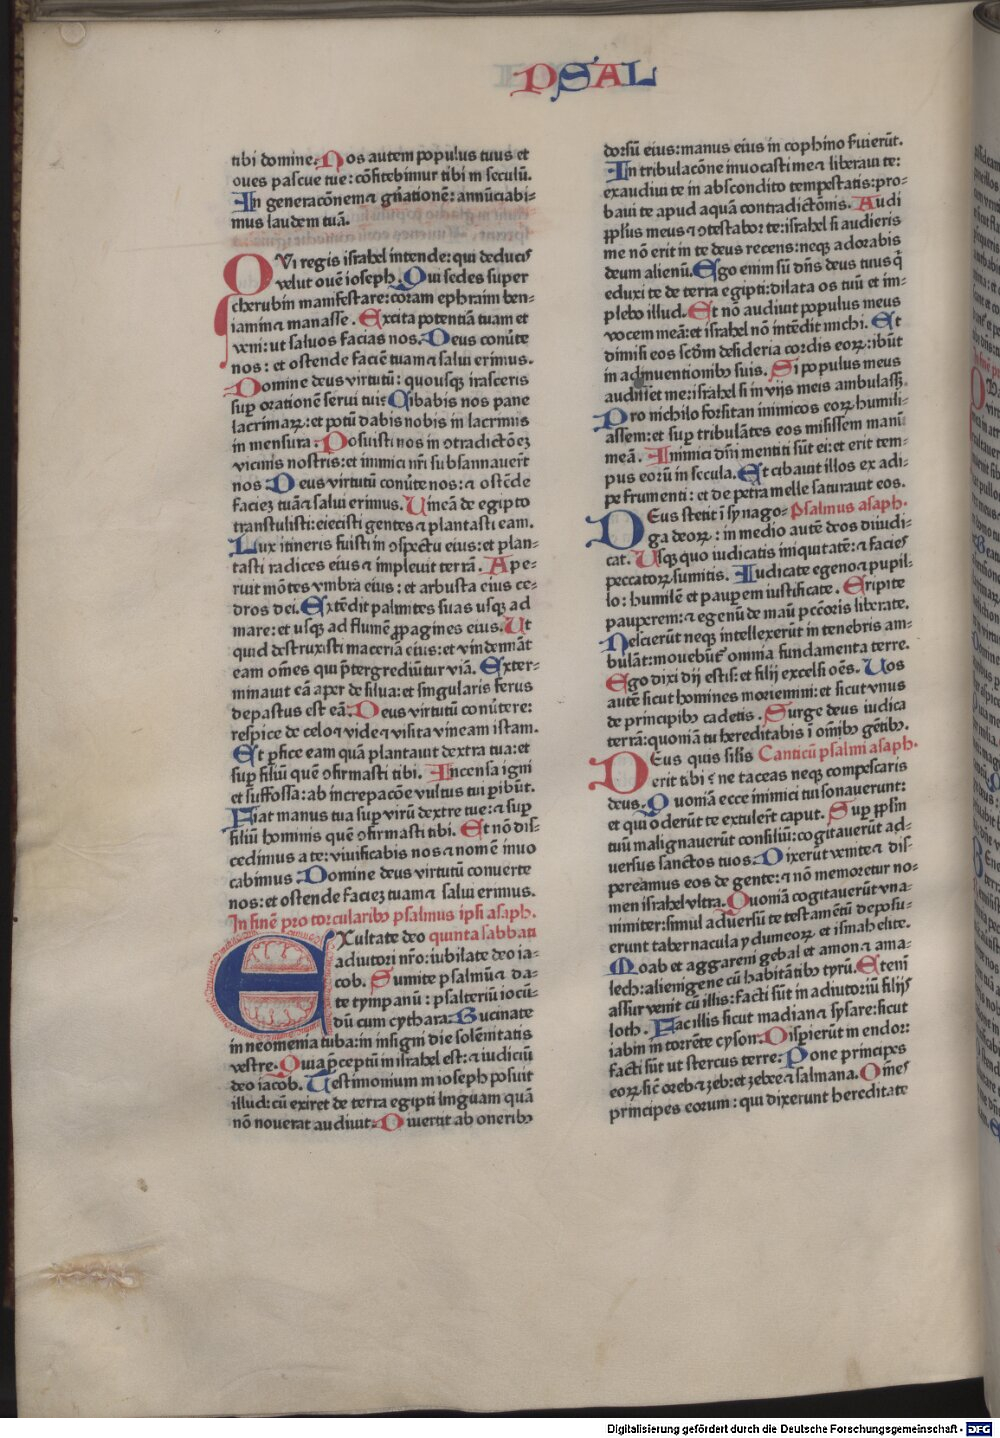 PSAL
tibi domine. Nos autem populus tuus et
oues pascue tue: cōfitebimur tibi in seculū.
In generacōnem ⁊ gn̄ationē: annūciabi-
mus laudem tuā.
QVi regis israhel intende: qui deducis
velut ouē ioseph. Qui sedes super
cherubin manifestare: coram ephraim ben-
iamin ⁊ manasse. Excita potentiā tuam et
veni: ut saluos facias nos. Deus conūte
nos: et ostende faciē tuam ⁊ salui erimus.
Domine deus virtutū: quousqꝫ irasceris
suꝑ orationē serui tui? Cibabis nos pane
lacrimaꝝ: et potū dabis nobis in lacrimis
in mensura. Posuisti nos in ꝯtradictōeꝫ
vicinis nostris: et inimici nr̄i subsannauerūt
nos. Deus virtutū conūte nos: ⁊ ostēde
facieꝫ tuā ⁊ salui erimus. Vineā de egipto
transtulisti: eiecisti gentes ⁊ plantasti eam.
Dux itineris fuisti in ꝯspectu eius: et plan-
tasti radices eius ⁊ impleuit terrā. Ape-
ruit mōtes vmbra eius: et arbusta eius ce-
dros dei. Extēdit palmites suas usqꝫ ad
mare: et usqꝫ ad flumē ꝓpagines eius. Ut
quid destruxisti maceriā eius: et vindemiāt
eam om̄es qui p̄tergrediūtur viā. Exter-
minauit eā aper de silua: et singularis ferus
depastus est eā. Deus virtutū conūtere:
respice de celo ⁊ vide ⁊ visita vineam istam.
Et ꝑfice eam quā plantauit dextra tua: et
suꝑ filiū quē ꝯfirmasti tibi. Incensa igni
et suffossa: ab increpacōe vultus tui ꝑibūt.
Fiat manus tua suꝑ virū dextre tue: ⁊ suꝑ
filiū hominis quē ꝯfirmasti tibi. Et nō dis-
cedimus a te: viuificabis nos ⁊ nomē inuo
cabimus. Domine deus virtutū conuerte
nos: et ostende facieꝫ tuam ⁊ salui erimus.
In finē pro torcularibꝰ psalmus ipsi asaph.
EXultate deo quinta sabbati
adiutori nr̄o: iubilate deo ia-
cob. Sumite psalmū ⁊ da-
te tympanū: psalteriū iocū-
dū cum cythara. Bucinate
in neomenia tuba: in insigni die solēnitatis
vestre. Quia p̄ceptū in israhel est: ⁊ iudiciū
deo iacob. Testimonium in ioseph posuit
illud: cū exiret de terra egipti linguam quā
nō nouerat audiuit. Diuertit ab oneribꝰ
dorsū eius: manus eius in cophino seruierūt.
In tribulacōne inuocasti me ⁊ liberaui te:
exaudiui te in abscondito tempestatis: pro-
baui te apud aquā contradictōnis. Audi
ppl̄us meus ⁊ ꝯtestaboꝛ te: israhel si audieris
me nō erit in te deus recens: neqꝫ adorabis
deum alienū. Ego enim sū dn̄s deus tuus q̄
eduxi te de terra egipti: dilata os tuū et im-
plebo illud. Et nō audiuit populus meus
vocem meā: et israhel nō intēdit michi. Et
dimisi eos scd̄m desideria cordis eoꝝ: ibūt
in adinuentionibꝰ suis. Si populus meus
audisset me: israhel si in vijs meis ambulass̄.
Pro nichilo forsitan inimicos eoꝝ humili-
assem: et suꝑ tribulātes eos misissem manū
meā. Inimici dn̄i mentiti sūt ei: et erit tem-
pus eorū in secula. Et cibauit illos ex adi-
pe frumenti: et de petra melle saturauit eos.
DEus stetit ī synago- Psalmus asaph.
ga deoꝝ: in medio autē deos diiudi-
cat. Usqꝫ quo iudicatis iniquitatē: ⁊ facies
peccatoꝝ sumitis. Iudicate egeno ⁊ pupil-
lo: humilē et pauperem iustificate. Eripite
pauperem: ⁊ egenū de manu pc̄coris liberate.
Nescierūt neqꝫ intellexerūt in tenebris am-
bulāt: mouebūtᷣ omnia fundamenta terre.
Ego dixi dij estis: et filij excelsi oēs. Vos
autē sicut homines moriemini: et sicut vnus
de principibꝰ cadetis. Surge deus iudica
terrā: quoniā tu hereditabis ī om̄ibꝰ gētibꝰ.
DEus quis silis Canticū psalmi asaph.
erit tibi? ne taceas neqꝫ compescaris
deus. Quoniā ecce inimici tui sonauerunt:
et qui oderūt te extulerūt caput. Suꝑ ppl̄m
tuū malignauerūt consiliū: cogitauerūt ad-
uersus sanctos tuos. Dixerūt venite ⁊ dis-
pereamus eos de gente: ⁊ nō memoretur no-
men israhel vltra. Quoniā cogitauerūt vna-
nimiter: simul aduersū te testamētū deposu-
erunt tabernacula ydumeoꝝ et ismahelite.
Moab et aggareni gebal et amon ⁊ ama-
lech: alienigene cū habitātibꝰ tyrū. Etenī
assur venit cū illis: facti sūt in adiutoriū filijs
loth. Fac illis sicut madian ⁊ sysare: sicut
iabin in torrēte cyson. Dispierūt in endor:
facti sūt ut stercus terre. Pone principes
eoꝝ sic̄ oreb ⁊ zeb: et zebee ⁊ salmana. Om̄es
principes eorum: qui dixerunt hereditate
Digitalisierung gefördert durch die Deutsche Forschungsgemeinschaft - DFG